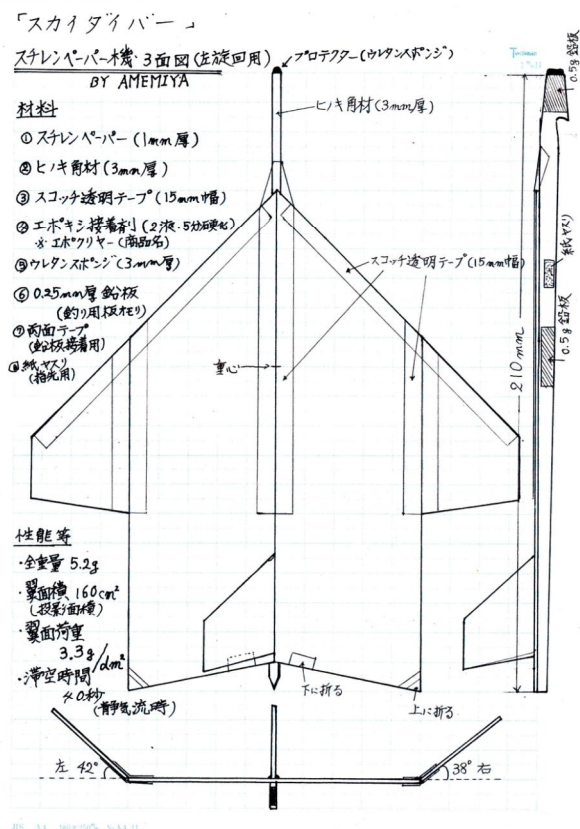 「スカイダイバー」
スチレンペーパー機・3面図(左旋回用)
BY AMEMIYA
プロテクター(ウレタンスポンジ)
ヒノキ角材(3mm厚)
材料
①スチレンペーパー(1mm厚)
②ヒノキ角材(3mm厚)
③スコッチ透明テープ(15mm幅)
④エポキシ接着剤(2液・5分硬化)
※エポクリヤー(商品名)
⑤ウレタンスポンジ(3mm厚)
⑥0.25mm厚鉛板
(釣り用板オモリ)
⑦両面テープ
(鉛板接着用)
⑧紙ヤスリ
(指先用)
スコッチ透明テープ(15mm幅)
重心
0.5g鉛板
紙ヤスリ
0.5g鉛板
210mm
性能等
・全重量 5.2g
・翼面積 160cm²
(投影面積)
・翼面荷重
3.3g/dm²
・滞空時間
40秒
(静気流時)
下に折る
上に折る
左 42°
38° 右